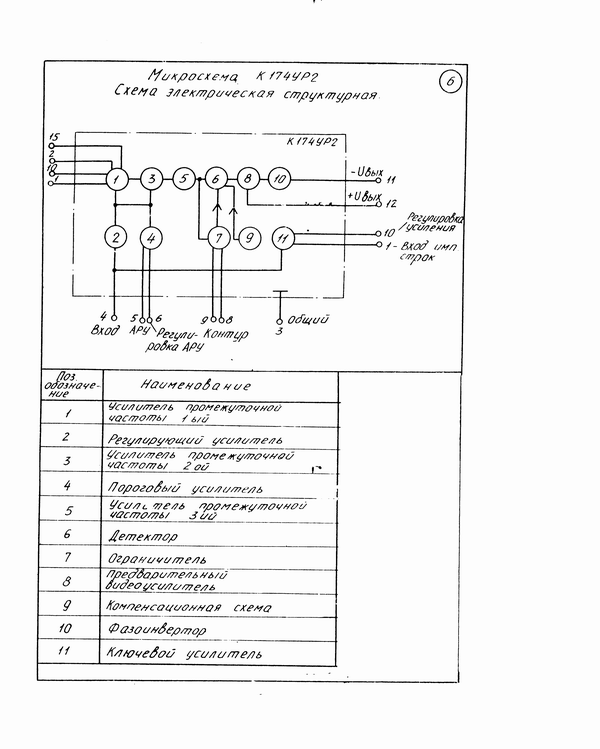 Микросхема К174УР2
Схема электрическая структурная.
6
К174УР2
15
2
10
1
1
3
5
6
8
10
-Uвых
11
+Uвых
12
2
4
7
9
11
Регулировка
10 /усиления
1-Вход имп
строк
4
5
6
9
8
3
Общий
Вход АРУ Регули- Контур
ровка АРУ
Поз.
обозначе-
ние
Наименование
1
Усилитель промежуточной
частоты 1 ый
2
Регулирующий усилитель
3
Усилитель промежуточной
частоты 2 ой
4
Пороговый усилитель
5
Усилитель промежуточной
частоты 3 ий
6
Детектор
7
Ограничитель
8
Предварительный
видеоусилитель
9
Компенсационная схема
10
Фазоинвертор
11
Ключевой усилитель